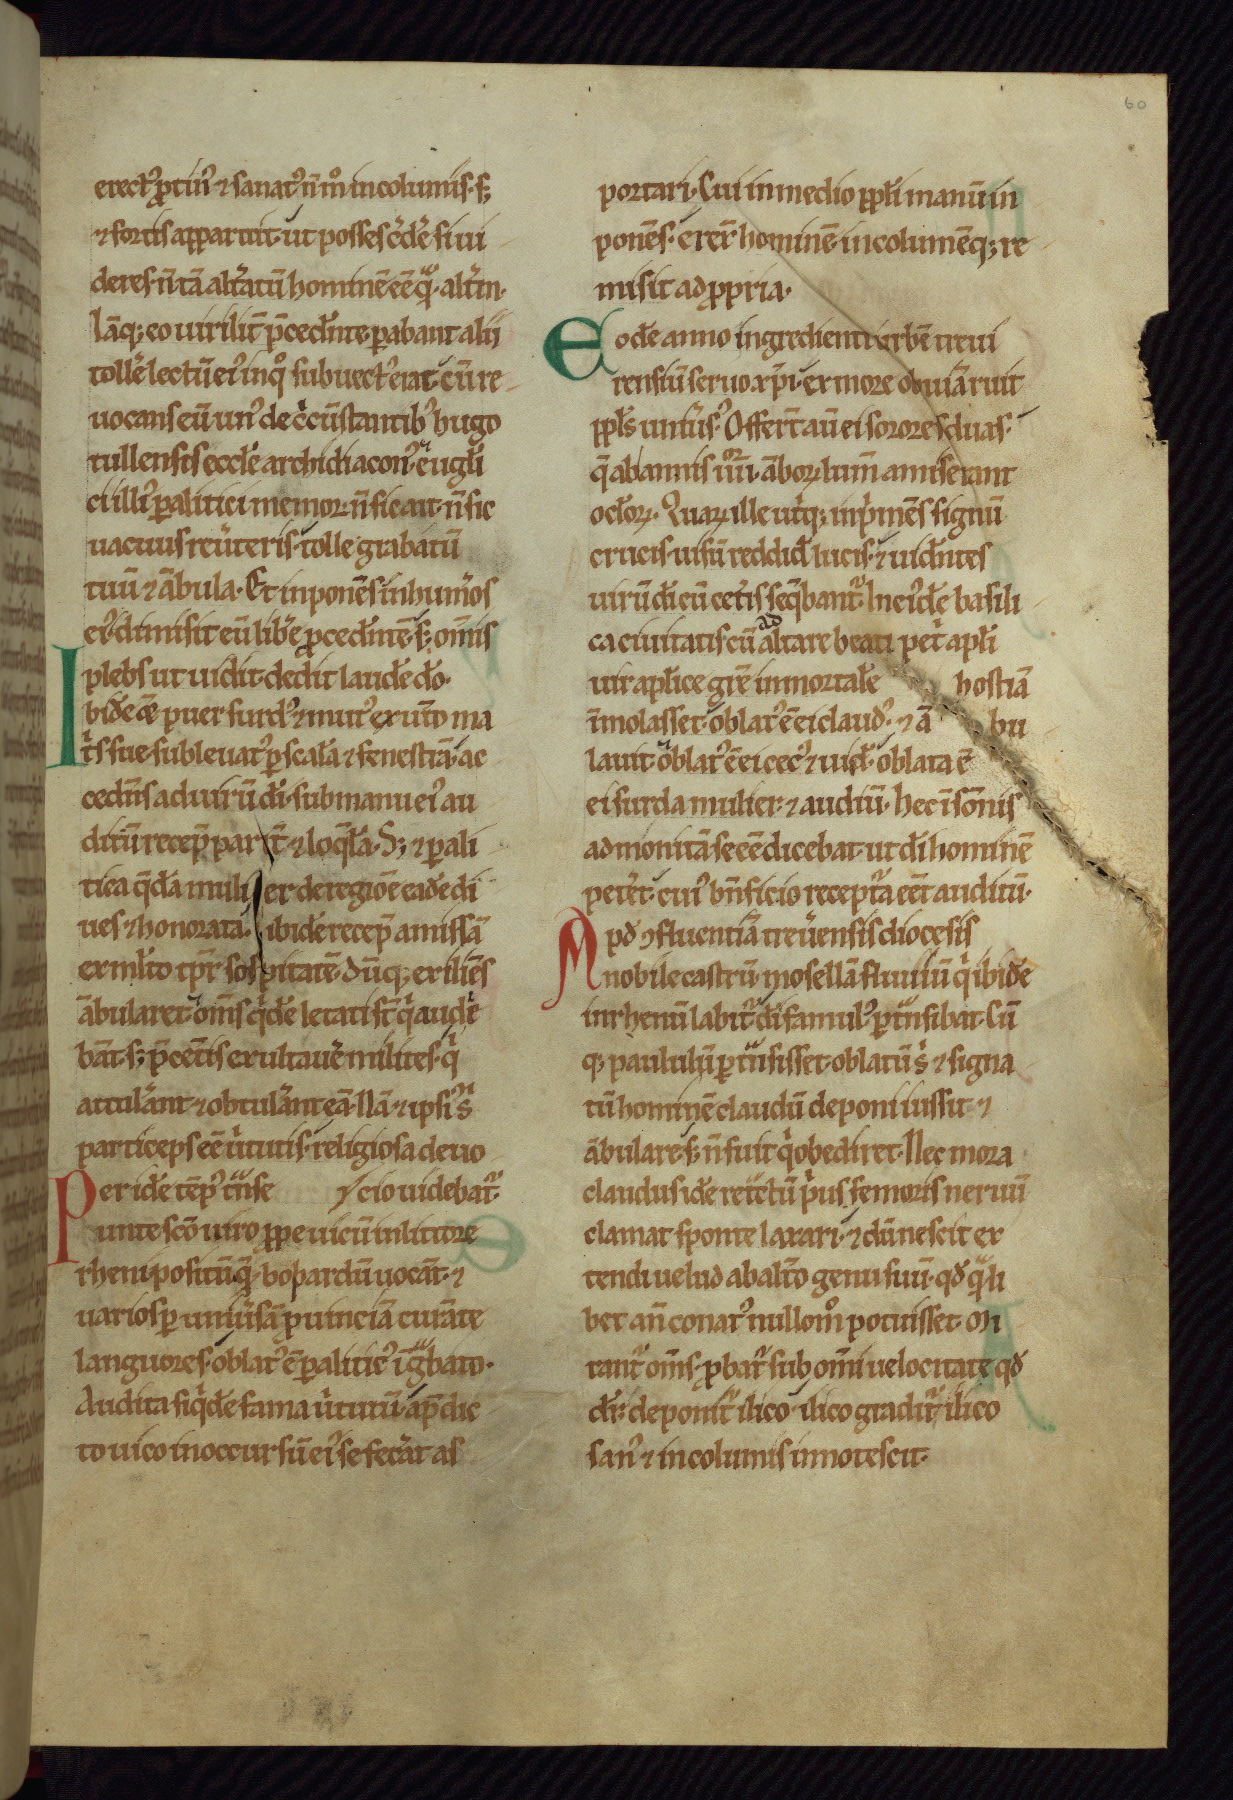 60
erect᷒ ꝓtin᷒ ⁊ sanat᷒ ñ m̊ incolumis· s;
⁊ fortis apparuit· ut posses c̃de᷒ si ui
deres· ñ tã alt̃atũ hominẽ eẽ q̃· alt̃in·
lãq; eo uirilit̃ p̃cedẽnte· ꝑabant alii
tolle᷒ lectũ ei᷒ inq̊ subuect᷒ erat· cũ re
uocans eũ un᷒ de c̃cũstantib᷒ hugo
tullensis ecclẽ archidiacon᷒· eũgl̃i
ci illi᷒ ꝑalitici memor· ñ sic ait· ñ sic
uacuus reũteris· tolle grabatũ
tuũ ⁊ ãbula· Et inponẽs in hum̃os
ei᷒ dimisit eũ lib̃e ꝓcedẽntẽ· s; om̃is
plebs ut uidit· dedit laudẽ dõ·
Ibidẽ cẽ puer surd᷒ ⁊ mut᷒ ex ut̃o ma
t̃s sue· subleuat᷒ ꝑ scalã ⁊ fenestrã· ac
cedẽns ad uirũ dĩ· sub manu ei᷒ au
ditũ recep̃ parit̃ ⁊ loq̃lã· S; ⁊ ꝑali
tica q̃dã mulier de regiõe eadẽ di
ues ⁊ honorata· ibidẽ recep̃ amissã
ex ml̃to tp̃r sospitatẽ· Dũq; exiliẽs
ãbularet· om̃s q̃dẽ letati st̃ q̃ aude᷒
bãt· s; p̃ cet̃is exultaue᷒ milites· q̃
attul̃ant ⁊ obtul̃ant eã· llã ⁊ ipsi᷒ s̃
particeps eẽ ũtutis· religiosa deuo
Per idẽ tẽp᷒ t̃nse cio uidebat᷒·
unte sc̃o uiro ꝓpe uicũ in littore
rheni positũ q̃ bopardũ uocãt· ⁊
uarios ꝑ uniũsã ꝓuinciã curãte
languores· oblat᷒ ẽ ꝑalitic᷒ ĩ g̃bato·
Audita siq̃dẽ fama ũtutũ· ap̃dic
to uico in occursũ ei᷒ se fec̃at as
portari· Cui in medio ppl̃i manũ in
ponẽs· erex̃ hominẽ incolumẽq; re
misit ad ꝓpria·
Eodẽ anno ingredienti urbẽ treui
rensiũ seruo xp̃i· ex more obuiã ruit
ppl̃s uniũs᷒· Offert̃ aũ ei sorores duas·
q̃ ab annis iiii᷒ᵒʳ· ãbor lum̃ amiserant
ocl̃oꝝ· Quaꝝ ille ut̃q; inp̃mẽs signũ
crucis· uisũ reddid̃ lucis· ⁊ uidẽntes
uirũ dĩ cũ cet̃is seq̃bant᷒· In ei᷒dẽ basili
ca ciuitatis· cũ ad altare beati pet̃ apl̃i
uir apl̃ice gr̃e inmortalẽ hostiã
ĩmolasset· oblat᷒ ẽ ei claud᷒· ⁊ ã bu
lauit· oblat᷒ ẽ ei cec᷒ ⁊ uid̃· oblata ẽ
ei surda mulier· ⁊ audiũ· hec ĩ sõnis
admonitã se eẽ dicebat· ut dĩ hominẽ
pet̃et· cui᷒ bñficio recept̃a eẽt auditũ·
Apđ ꝯfluentiã treũensis diocesis
nobile castrũ· mosellã fluuiũ q̃ ibidẽ
in rhenũ labit᷒· dĩ famul᷒ ꝑt̃nsibat· Cũ
q; paululũ ꝑt̃nsisset· oblatũ s̃ ⁊ signa
tũ hominẽ claudũ deponi iussit· ⁊
ãbulare· s; ñ fuit q̃ obediret· Nec mora
claudus idẽ retẽtũ p̃us femoris neruũ
clamat sponte laxari· ⁊ dũ nescit ex
tendi uelud ab alt̃o genu suũ· qđ q̃li
bet añ conat᷒ nullom̊ potuisset· Mi
rant᷒ om̃s· ꝓbat᷒ sub om̃i uelocitate qđ
dr̃· deponit᷒ ilico· ilico gradit᷒· ilico
san᷒ ⁊ incolumis innotescit·